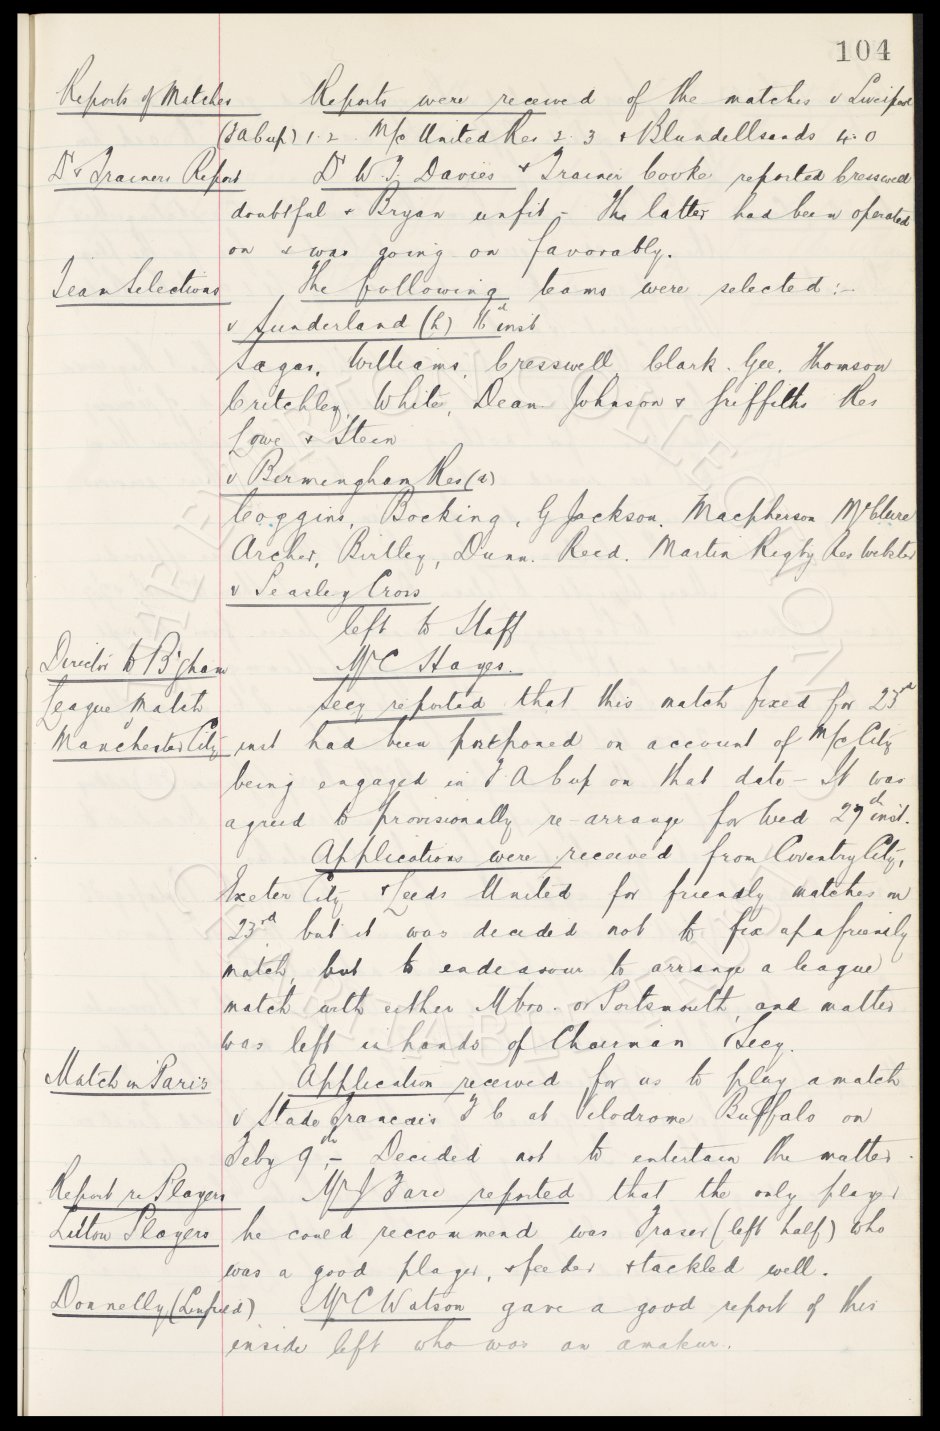 104
Reports of Matches Reports were received of the matches v Liverpool
(F A Cup) 1. 2. M/c United Res 2. 3 & Blundellsands 4. 0
Dr & Trainers Report Dr W. J. Davies & Trainer Cooke reported Cresswell
doubtful & Bryan unfit - The latter had been operated
on & was going on favorably.
Team Selections The following teams were selected :-
v Sunderland (h) 16th inst
Sagar, Williams, Cresswell, Clark. Gee. Thomson
Critchley, White, Dean. Johnson & Griffiths Res
Lowe & Stein
v Birmingham Res (a)
Coggins, Bocking, G Jackson. Macpherson McClure
Archer, Birtley, Dunn. Reed. Martin Rigby Res Webster
v Peasley Cross
left to Staff
Director to B'gham Mr C Hayes.
League Match Secy reported that this match fixed for 23rd
Manchester City inst had been postponed on account of M/c City
being engaged in F A Cup on that date - It was
agreed to provisionally re-arrange for Wed 27th inst.
Applications were received from Coventry City,
Exeter City & Leeds United for friendly matches on
23rd but it was decided not to fix up a friendly
match, but to endeavour to arrange a league
match with either Mbro. or Portsmouth, and matter
was left in hands of Chairman Secy.
Match in Paris Application received for us to play a match
v Stade Francais F C at Velodrome Buffalo on
Feby 9th, - Decided not to entertain the matter.
Report re Players Mr J Fare reported that the only player
Luton Players he could reccommend was Fraser (left half) who
was a good player, & feeder & tackled well.
Donnelly (Linfield) Mr C Watson gave a good report of this
inside left who was an amateur.